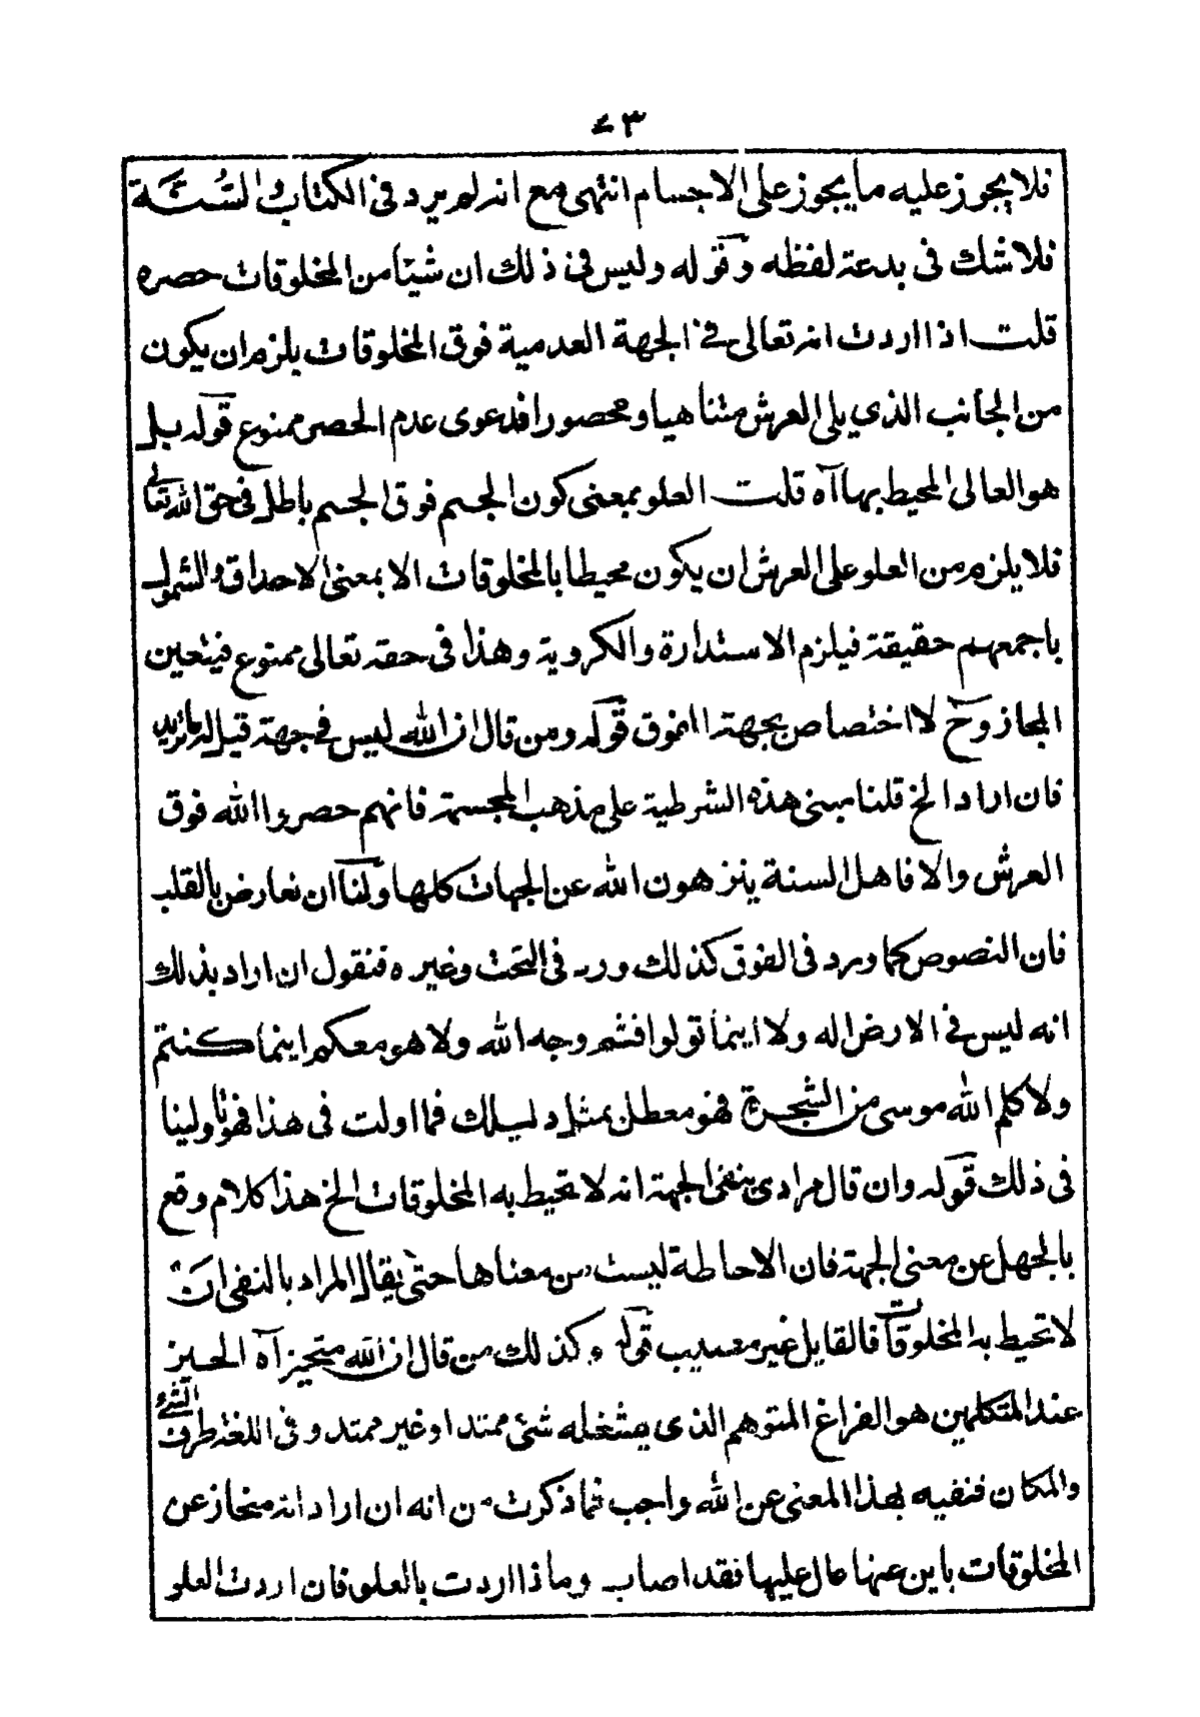 ٧٣
فلا يجوز عليه ما يجوز على الاجسام انتهى مع انه لم يرد في الكتاب والسنة
فلا شك في بدعة لفظه وقوله وليس في ذلك ان شيئا من المخلوقات حصره
قلت اذا اردت انه تعالى في الجهة العدمية فوق المخلوقات يلزم ان يكون
من الجانب الذي يلي العرش متناهيا ومحصورا فدعوى عدم الحصر ممنوع قوله بل
هو العالى المحيط بها آه قلت العلو بمعنى كون الجسم فوق الجسم باطل في حق الله تعالى
فلا يلزم من العلو على العرش ان يكون محيطا بالمخلوقات الا بمعنى الاحداق والشمول
باجمعهم حقيقة فيلزم الاستدارة والكروية وهذا في حقه تعالى ممنوع فيتعين
المجاز وح لا اختصاص بجهة الفوق قوله ومن قال ان الله ليس في جهة قيل له ما تريد
فان اراد الخ قلنا مبنى هذه الشرطية على مذهب المجسمة فانهم حصروا الله فوق
العرش والا فاهل السنة ينزهون الله عن الجهات كلها ولنا ان نعارض بالقلب
فان النصوص كما ورد في الفوق كذلك ورد في التحت وغيره فنقول ان اراد بذلك
انه ليس في الارض اله ولا اينما تولوا فثم وجه الله ولا هو معكم اينما كنتم
ولا كلم الله موسى من الشجرة فهو معطل بمثل دليلك فما اولت في هذا فهو تاولينا
في ذلك قوله وان قال مرادى بنفى الجهة انه لا تحيط به المخلوقات الخ هذا كلام وقع
بالجهل عن معنى الجهة فان الاحاطة ليست من معناها حتى يقال المراد بالنفى ان
لا تحيط به المخلوقات فالقايل غير مصيب قوله وكذلك من قال ان الله متحيز آه الحيز
عند المتكلمين هو الفراغ المتوهم الذى يشغله شئ ممتد او غير ممتد وفى اللغة طرف الشئ
والمكان فنفيه بهذا المعنى عن الله واجب فما ذكرت من انه ان اراد انه منحاز عن
المخلوقات باين عنها عال عليها فقد اصاب وماذا اردت بالعلو فان اردت العلو